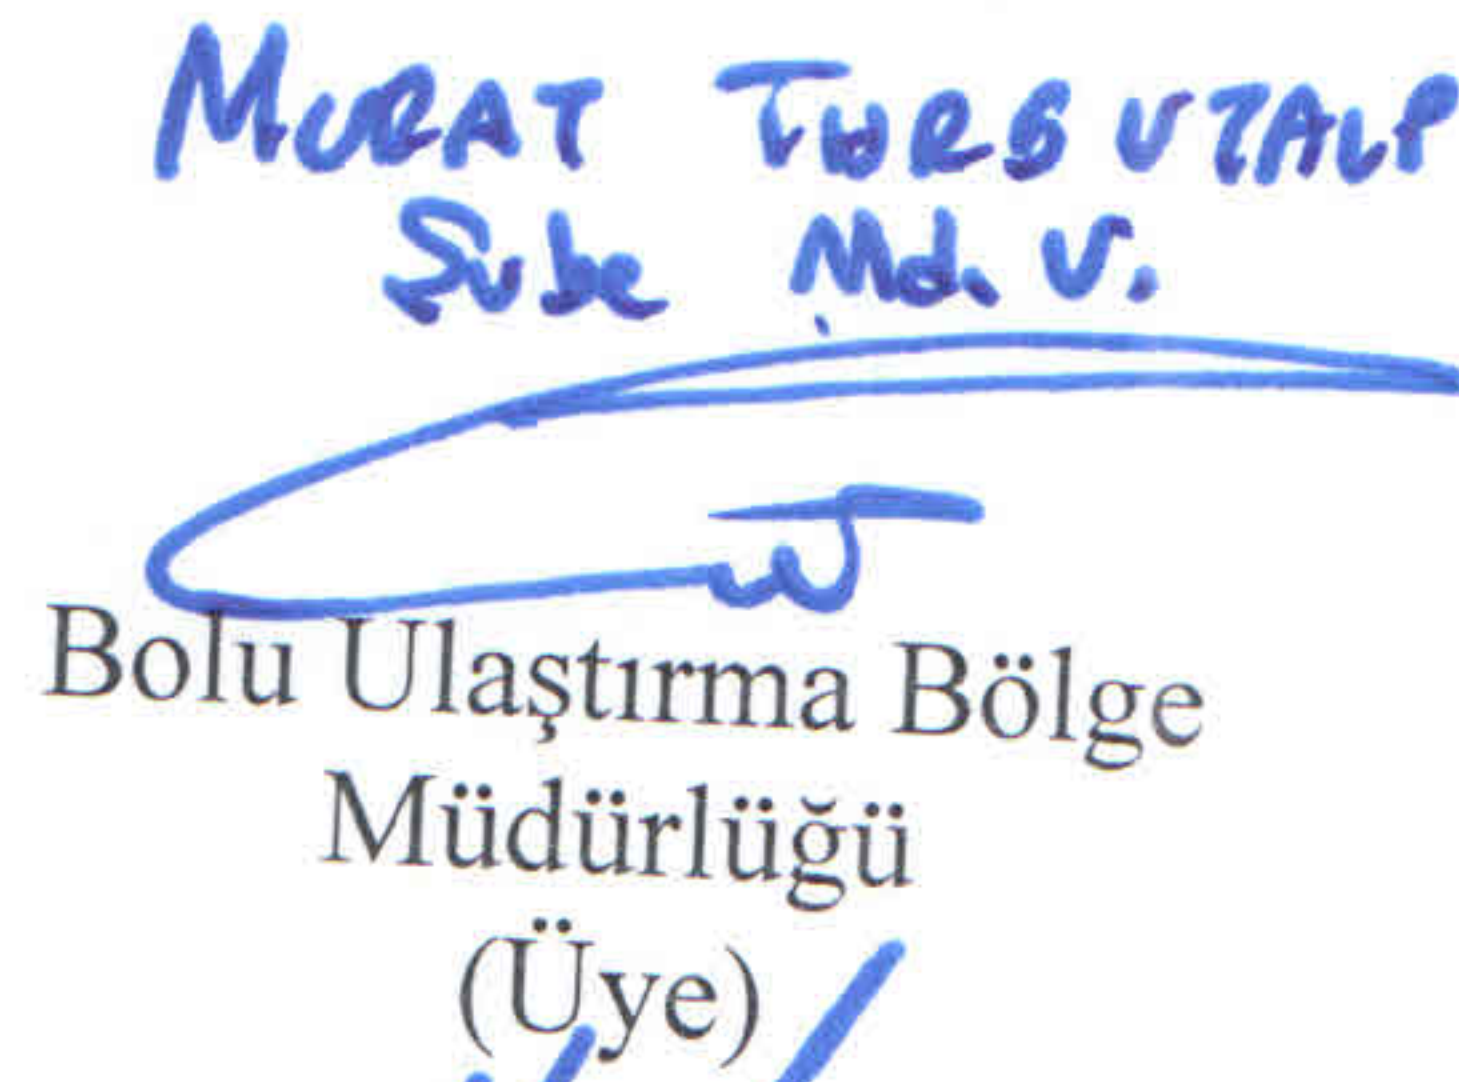 MURAT TURGUTALP
Şube Md. V.
Bolu Ulaştırma Bölge
Müdürlüğü
(Üye)